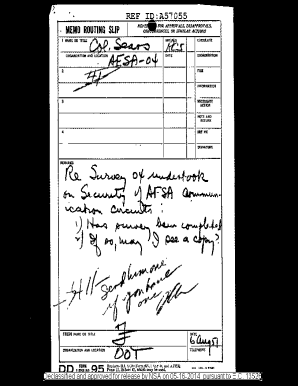 REF ID:A57055
MEMO ROUTING SLIP
NEVER USE FOR APPROVALS, DISAPPROVALS, CONCURRENCES, OR SIMILAR ACTIONS
1 NAME OR TITLE
Col. Sears
INITIALS
CIRCULATE
ORGANIZATION AND LOCATION
AFSA-04
DATE
COORDINATION
2
FILE
INFORMATION
3
NECESSARY ACTION
NOTE AND RETURN
4
SEE ME
SIGNATURE
REMARKS
Re Survey 04 undertook
on Security of AFSA Commun-
ication circuits:
1) Has survey been completed
2) If so, may I see a copy?
Send him one
if you have
one
FROM NAME OR TITLE
DATE
6 Aug 51
ORGANIZATION AND LOCATION
00T
TELEPHONE
DD FORM 95
Declassified and approved for release by NSA on 05-16-2014 pursuant to E.O. 13526